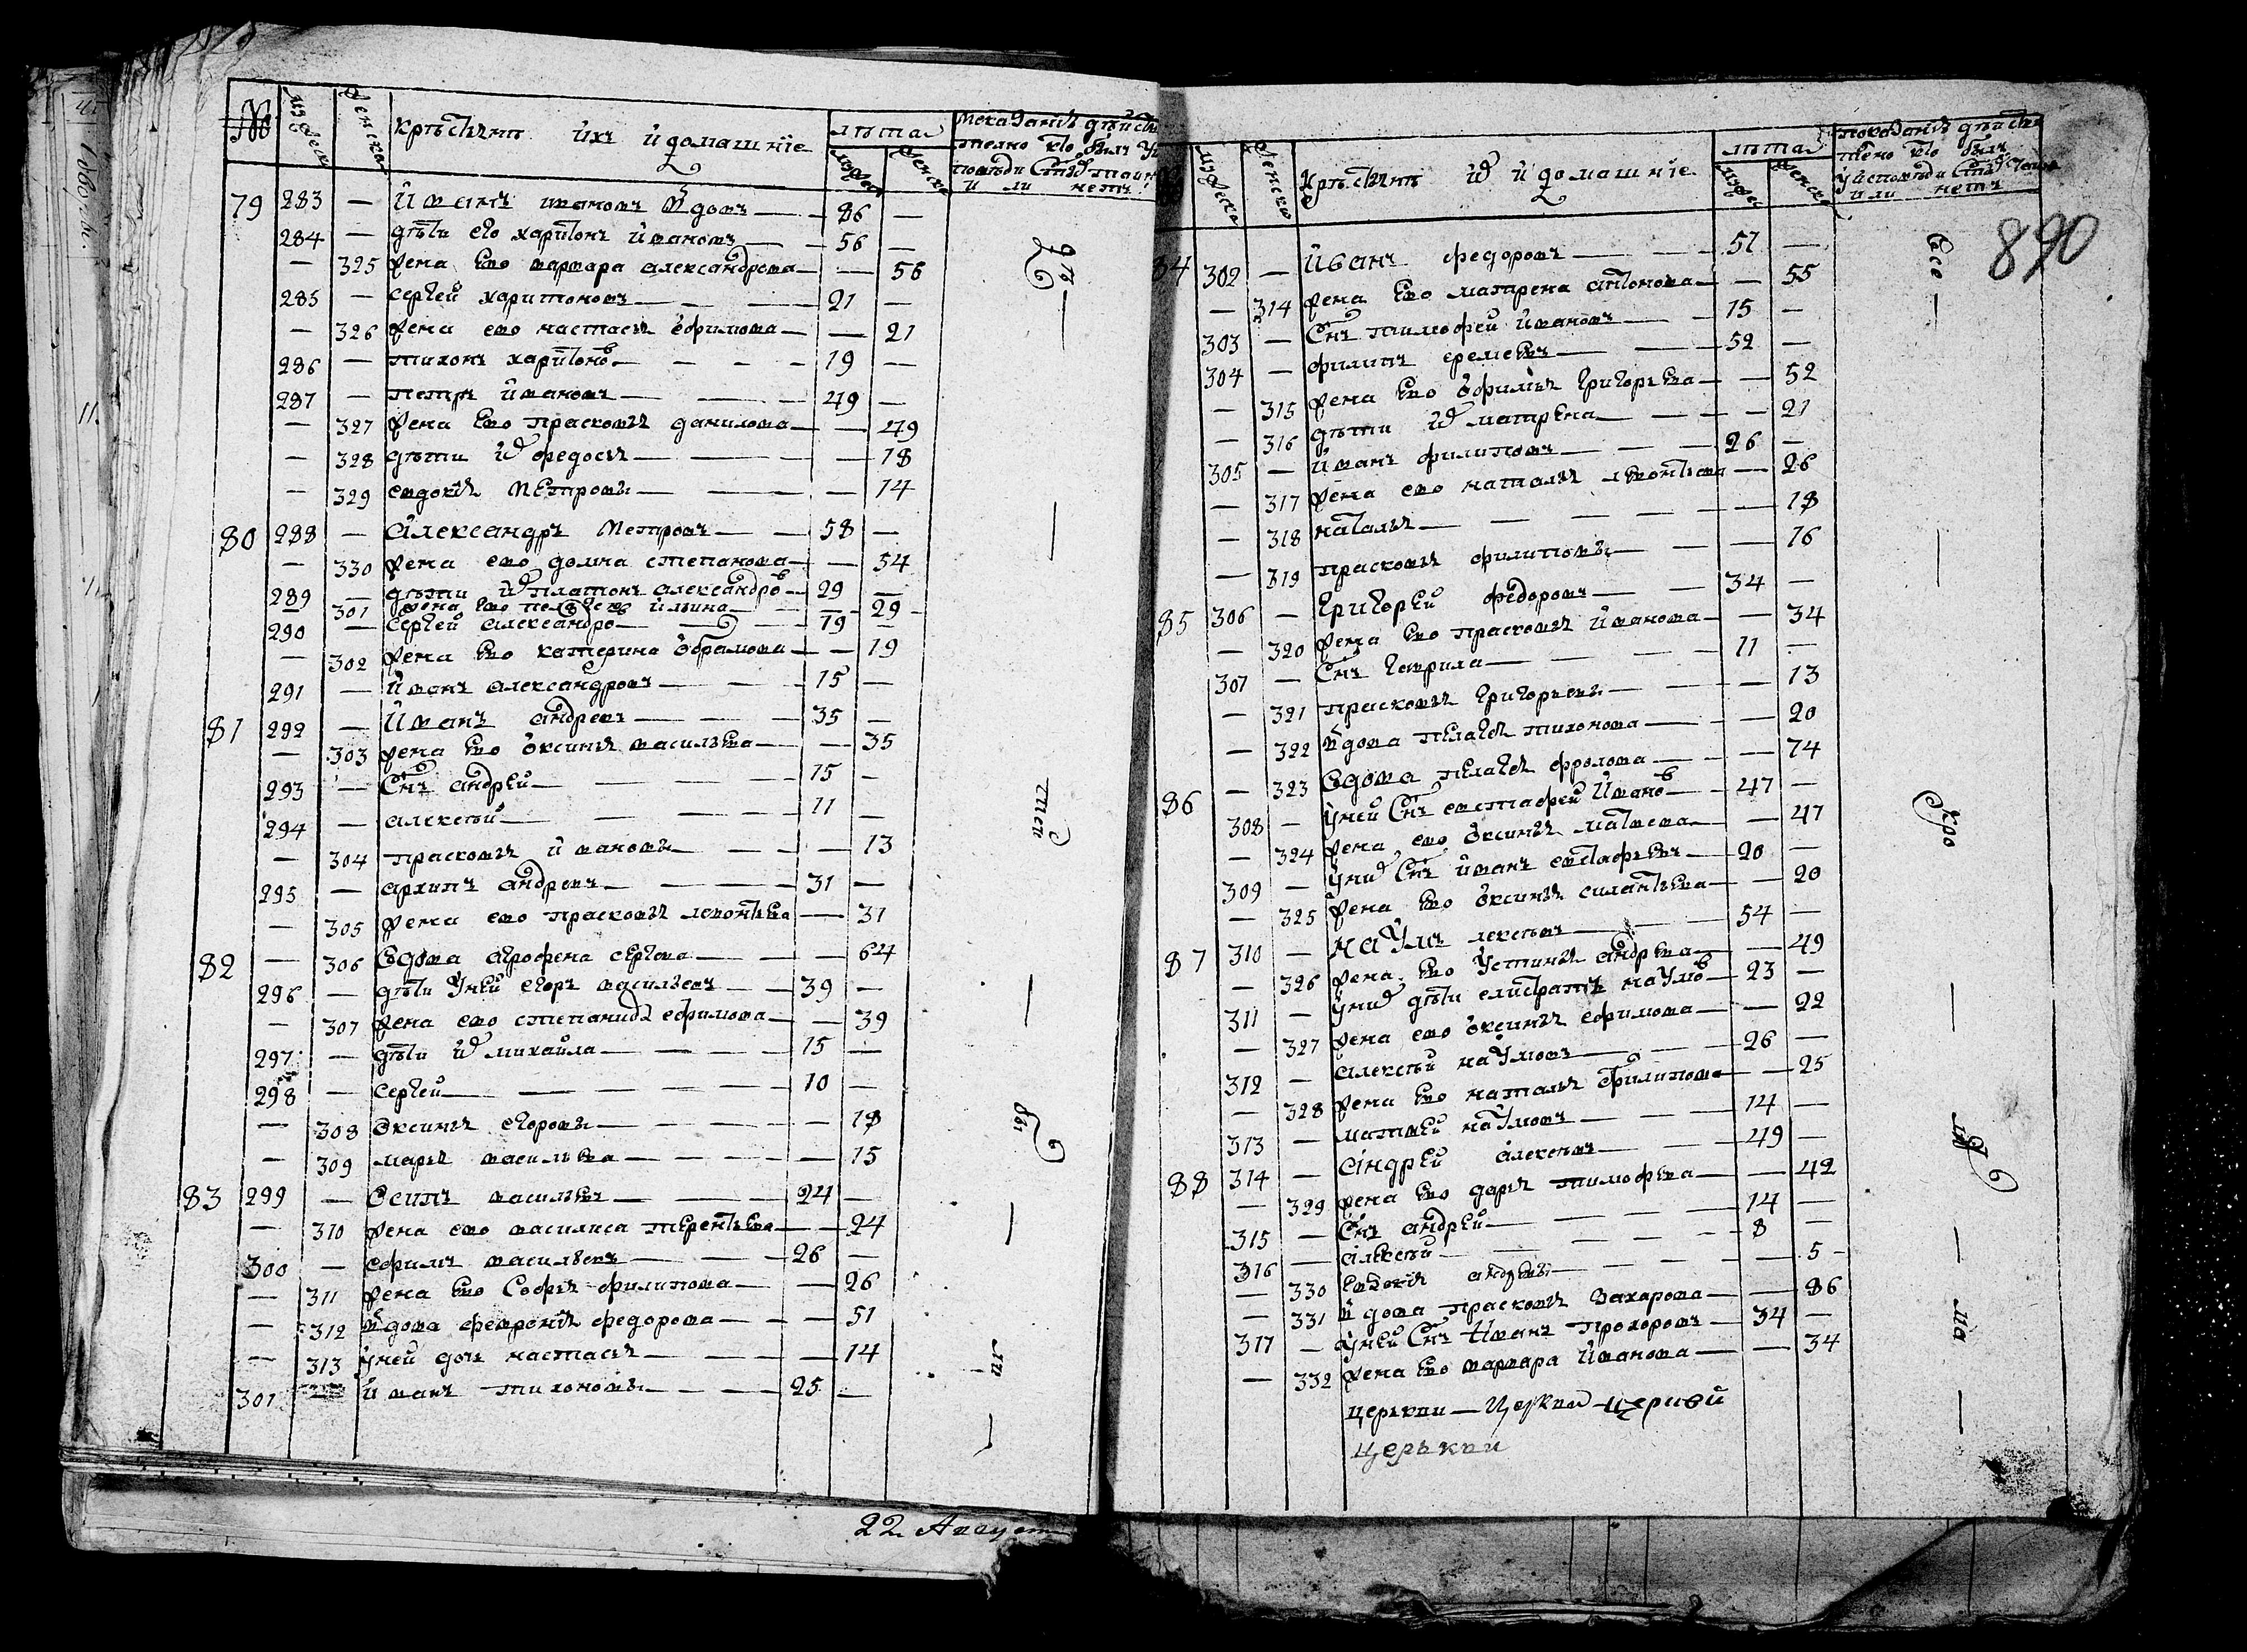 № мужеска женска крестьяне ихъ и домашние лета мужес женска
79 283 — Иванъ ивановъ вдовъ — 86 —
284 — дети его харитонъ ивановъ — 56 —
— 325 жена ево варвара александрова — — 56
285 — сергей харитоновъ — 21 —
— 326 жена ево настасья ефимова — — 21
286 — тихонъ харитоновъ — 19 —
287 — петръ ивановъ — 49 —
— 327 жена ево прасковья данилова — — 49
— 328 дети их федосья — — 18
— 329 евдокия петровы — — 14
80 288 — Александръ петровъ — 58 —
— 330 жена ево домна степанова — — 54
289 — дети их платонъ александровъ — 29 —
— 301 жена ево пелагея ильина — — 29
290 — сергей александро — 19 —
— 302 жена ево катерина обрамова — — 19
291 — иванъ александровъ — 15 —
81 292 — Иванъ андреевъ — 35 —
— 303 жена ево оксинья васильева — — 35
293 — снъ андрей — 15 —
294 — алексей — 11 —
— 304 прасковья ивановы — — 13
295 — архипъ андреевъ — 31 —
— 305 жена ево прасковья левонтьева — — 31
82 — 306 Вдова агрофена сергева — — 64
296 — дети у ней егоръ васильевъ — 39 —
— 307 жена ево степанида ефимова — — 39
297 — дети их михайла — 15 —
298 — сергей — 10 —
— 308 оксинья егоровы — — 18
— 309 марья васильева — — 15
83 299 — Осипъ васильевъ — 24 —
— 310 жена ево василиса терентьева — — 24
300 — ефимъ васильевъ — 26 —
— 311 жена ево софья филипова — — 26
— 312 вдова феврония федорова — — 51
— 313 у ней дочь настасья — — 14
301 — иванъ тихоновъ — 25 —
22 Август
мужеска женска крестьяне их и домашние лета мужес женска
890
84 302 — Иванъ федоровъ — 57 —
— 314 жена ево матрена антонова — — 55
303 — снъ тимофей ивановъ — 15 —
304 — филипъ еремеевъ — 52 —
— 315 жена ево офимья григорьева — — 52
— 316 дети их матрена — — 21
305 — иванъ филиповъ — 26 —
— 317 жена ево наталья левонтьева — — 26
— 318 наталья — — 18
— 319 прасковья филиповы — — 16
85 306 — Григорей федоровъ — 34 —
— 320 жена ево прасковья иванова — — 34
307 — снъ гаврила — 11 —
— 321 прасковья григорьевы — — 13
— 322 вдова пелагея тихонова — — 20
86 — 323 Вдова пелагея фролова — — 74
308 — у ней снъ евстафей ивановъ — 47 —
— 324 жена ево оксинья матвеева — — 47
309 — у них снъ иванъ евстафьевъ — 20 —
— 325 жена ево оксинья силантьева — — 20
87 310 — наумъ лексеевъ — 54 —
— 326 жена ево устинья андреева — — 49
311 — у них дети елистратъ наумовъ — 23 —
— 327 жена ево оксинья ефимова — — 22
312 — алексей наумовъ — 26 —
— 328 жена ево наталья филипова — — 25
313 — матвей наумовъ — 14 —
88 314 — Андрей алексеевъ — 49 —
— 329 жена ево дарья тимофеева — — 42
315 — снъ андрей — 14 —
316 — алексей — 8 —
— 330 евдокия андреевы — — 5
— 331 вдова прасковья захарова — — 86
317 — у ней снъ иванъ прохоровъ — 34 —
— 332 жена ево варвара иванова — — 34
церькви — церкви — церкви
церькви